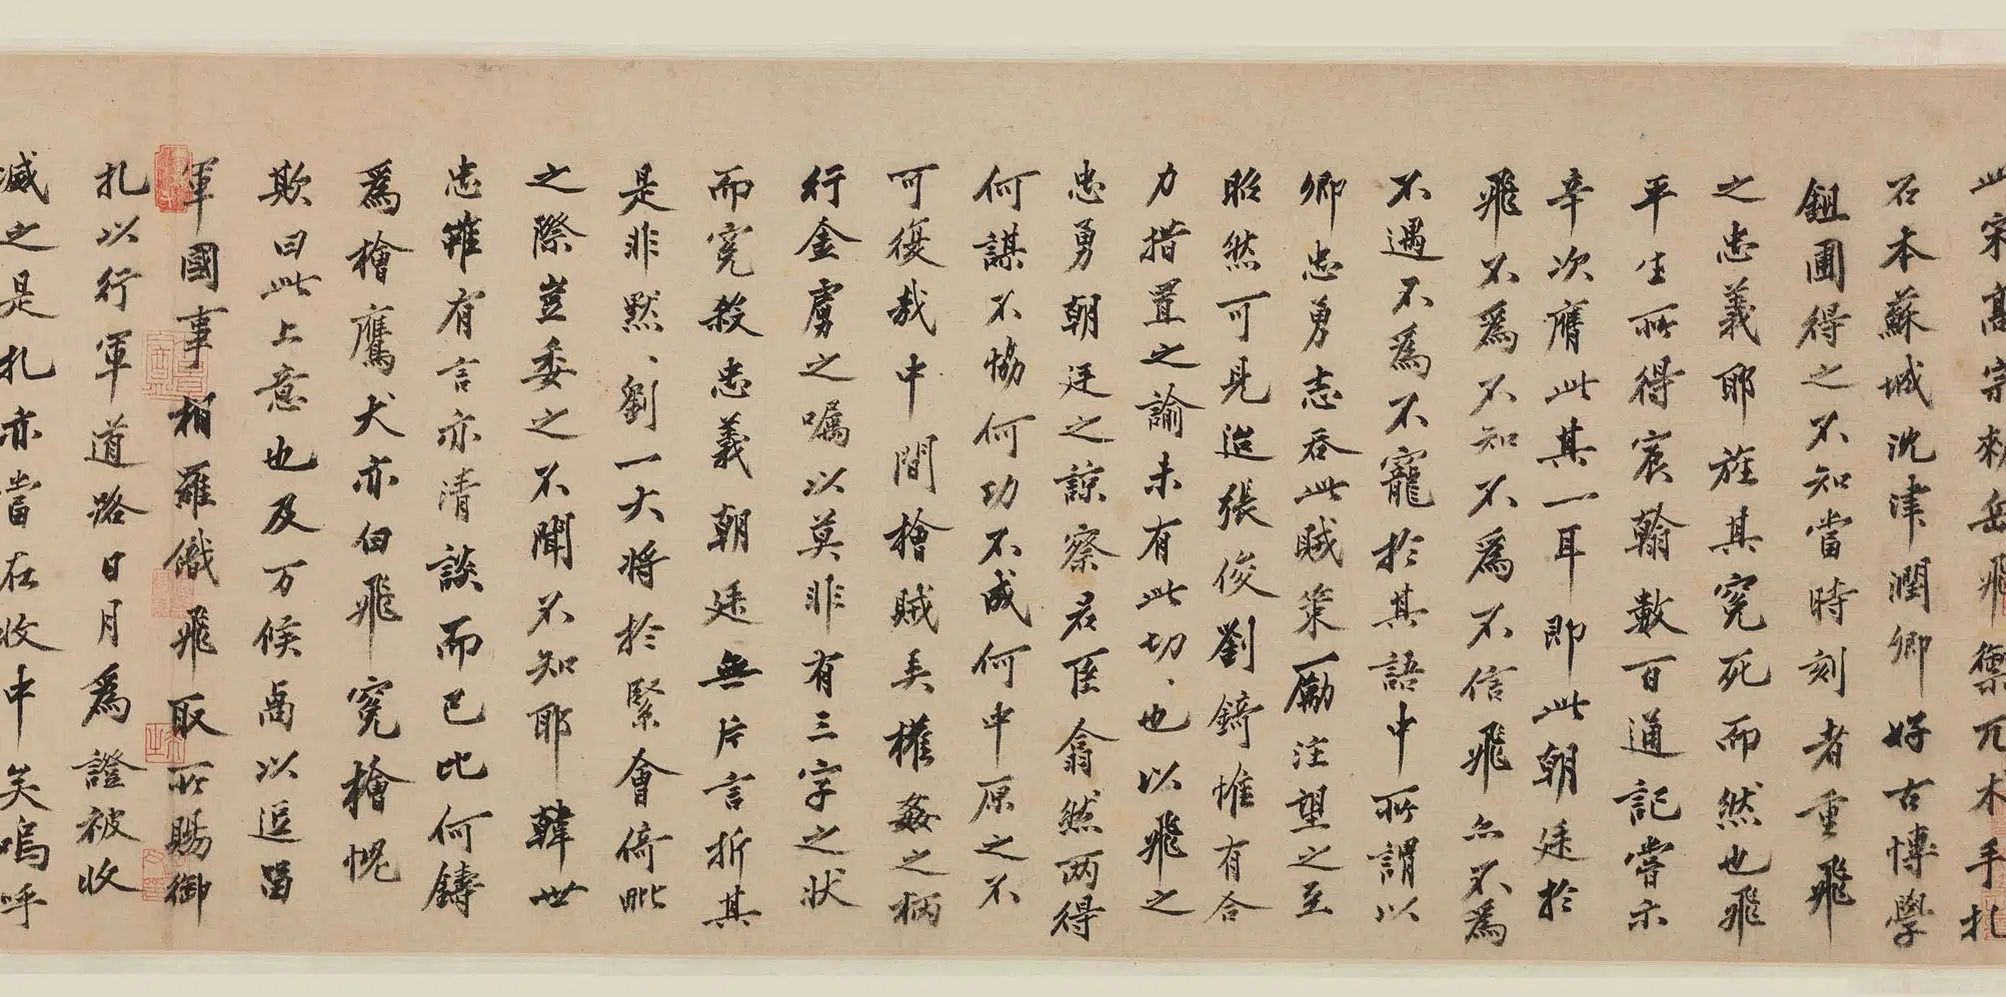 此宋髙宗敕岳飛禦兀朮手札
石本蘇城沈津潤卿好古博學
鉏圃得之不知當時刻者重飛
之忠義耶旌其寃死而然也飛
平生所得宸翰數百通記嘗示
辛次膺此其一耳即此朝廷於
飛不爲不知不爲不信飛亦不爲
不遇不爲不寵於其語中所謂以
卿忠勇志吞此賊策勵注望之至
昭然可見迨張俊劉錡惟有合
力措置之諭未有此切、也以飛之
忠勇朝廷之諒察君臣翕然两得
何謀不恊何功不成何中原之不
可復哉中間檜賊弄權姦之柄
行金虜之嘱以莫非有三字之状
而寃殺忠義朝廷無片言折其
是非黙、劉一大将於緊會倚毗
之際豈委之不聞不知耶韓世
忠雖有言亦清談而已比何鑄
爲檜鷹犬亦白飛寃檜愧
欺曰此上意也及万俟卨以逗畱
軍國事相羅織飛取所賜御
札以行軍道路日月爲證被收
滅之是札亦當在收中矣嗚呼